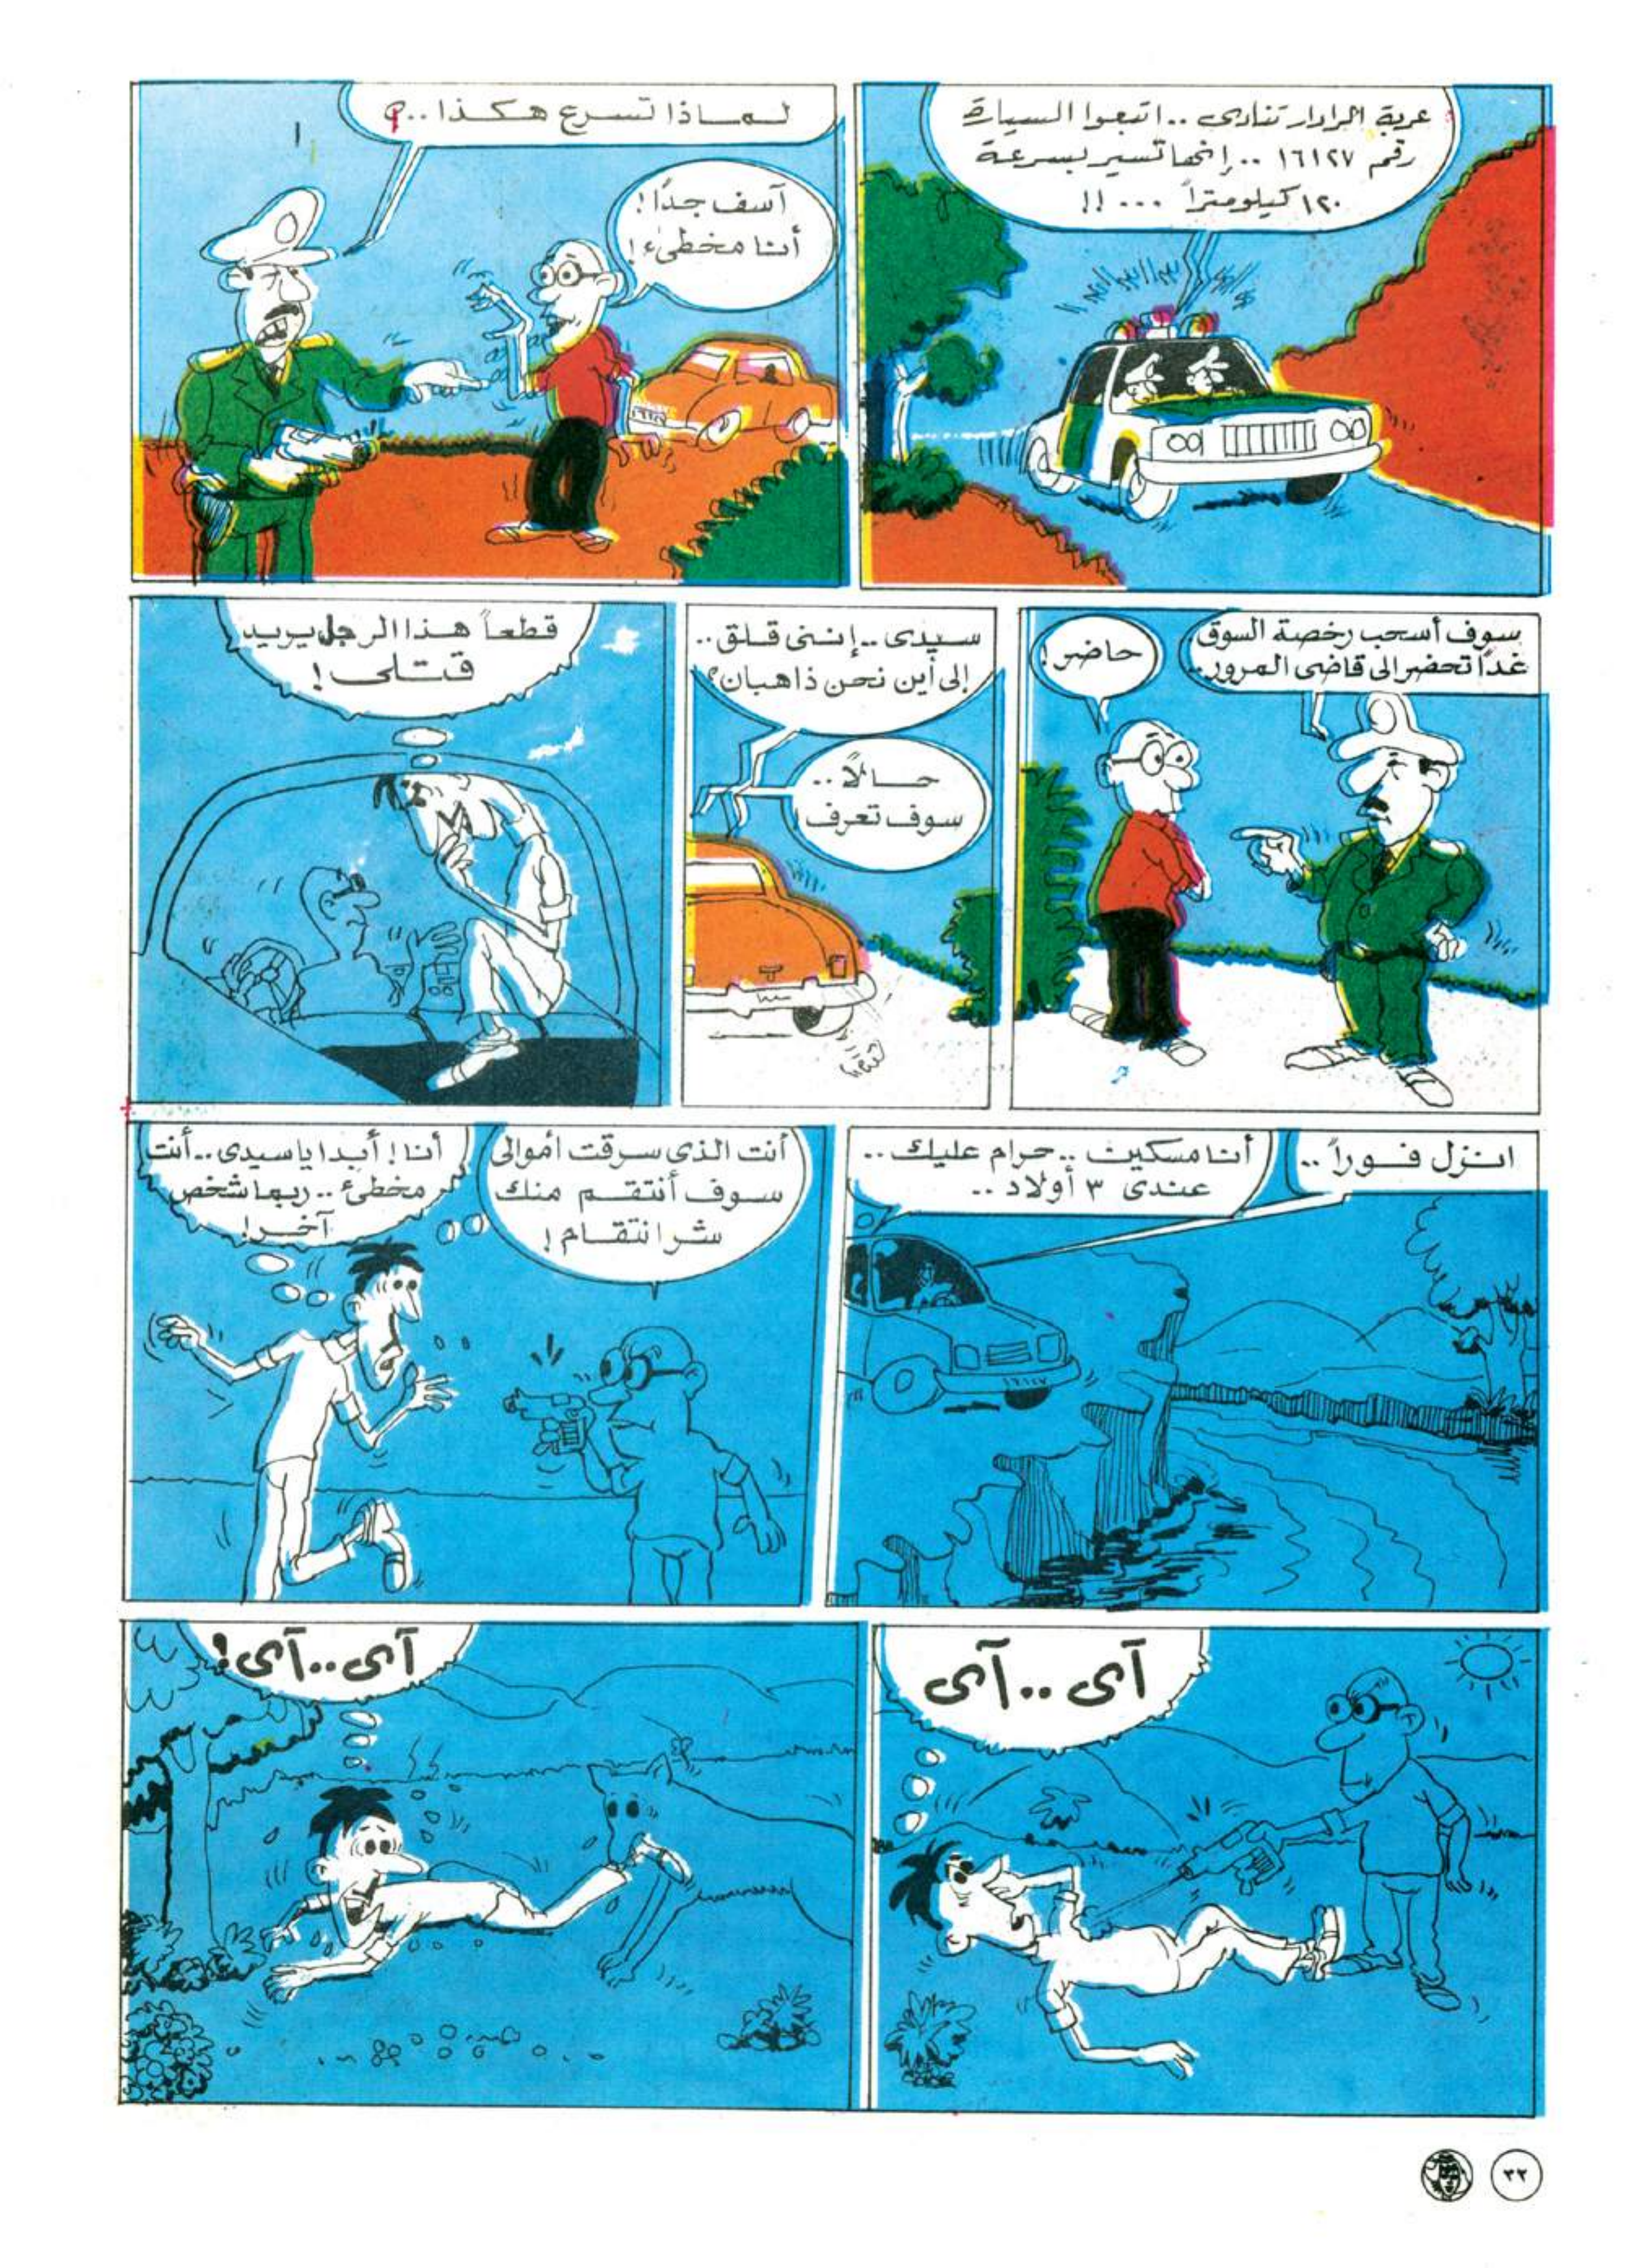 عربة الرادار تنادى .. اتبعوا السيارة
رقم ١٦١٢٧ .. إنها تسير بسرعة
١٢٠ كيلومتراً ... !!
لماذا تسرع هكذا ..؟
آسف جدًا!
أنا مخطىء!
سوف أسحب رخصة السوق
غداً تحضر إلى قاضى المرور..
حاضر!
سيدى .. إننى قلق ..
إلى أين نحن ذاهبان؟
حالاً ..
سوف تعرف!
قطعاً هذا الرجل يريد
قتلى!
انزل فوراً ..
أنا مسكين .. حرام عليك ..
عندى ٣ أولاد ..
أنت الذى سرقت أموالى
سوف أنتقم منك
شر انتقام!
أنا! أبدا يا سيدى .. أنت
مخطئ .. ربما شخص
آخر!
آى .. آى
آى .. آى!
٣٢